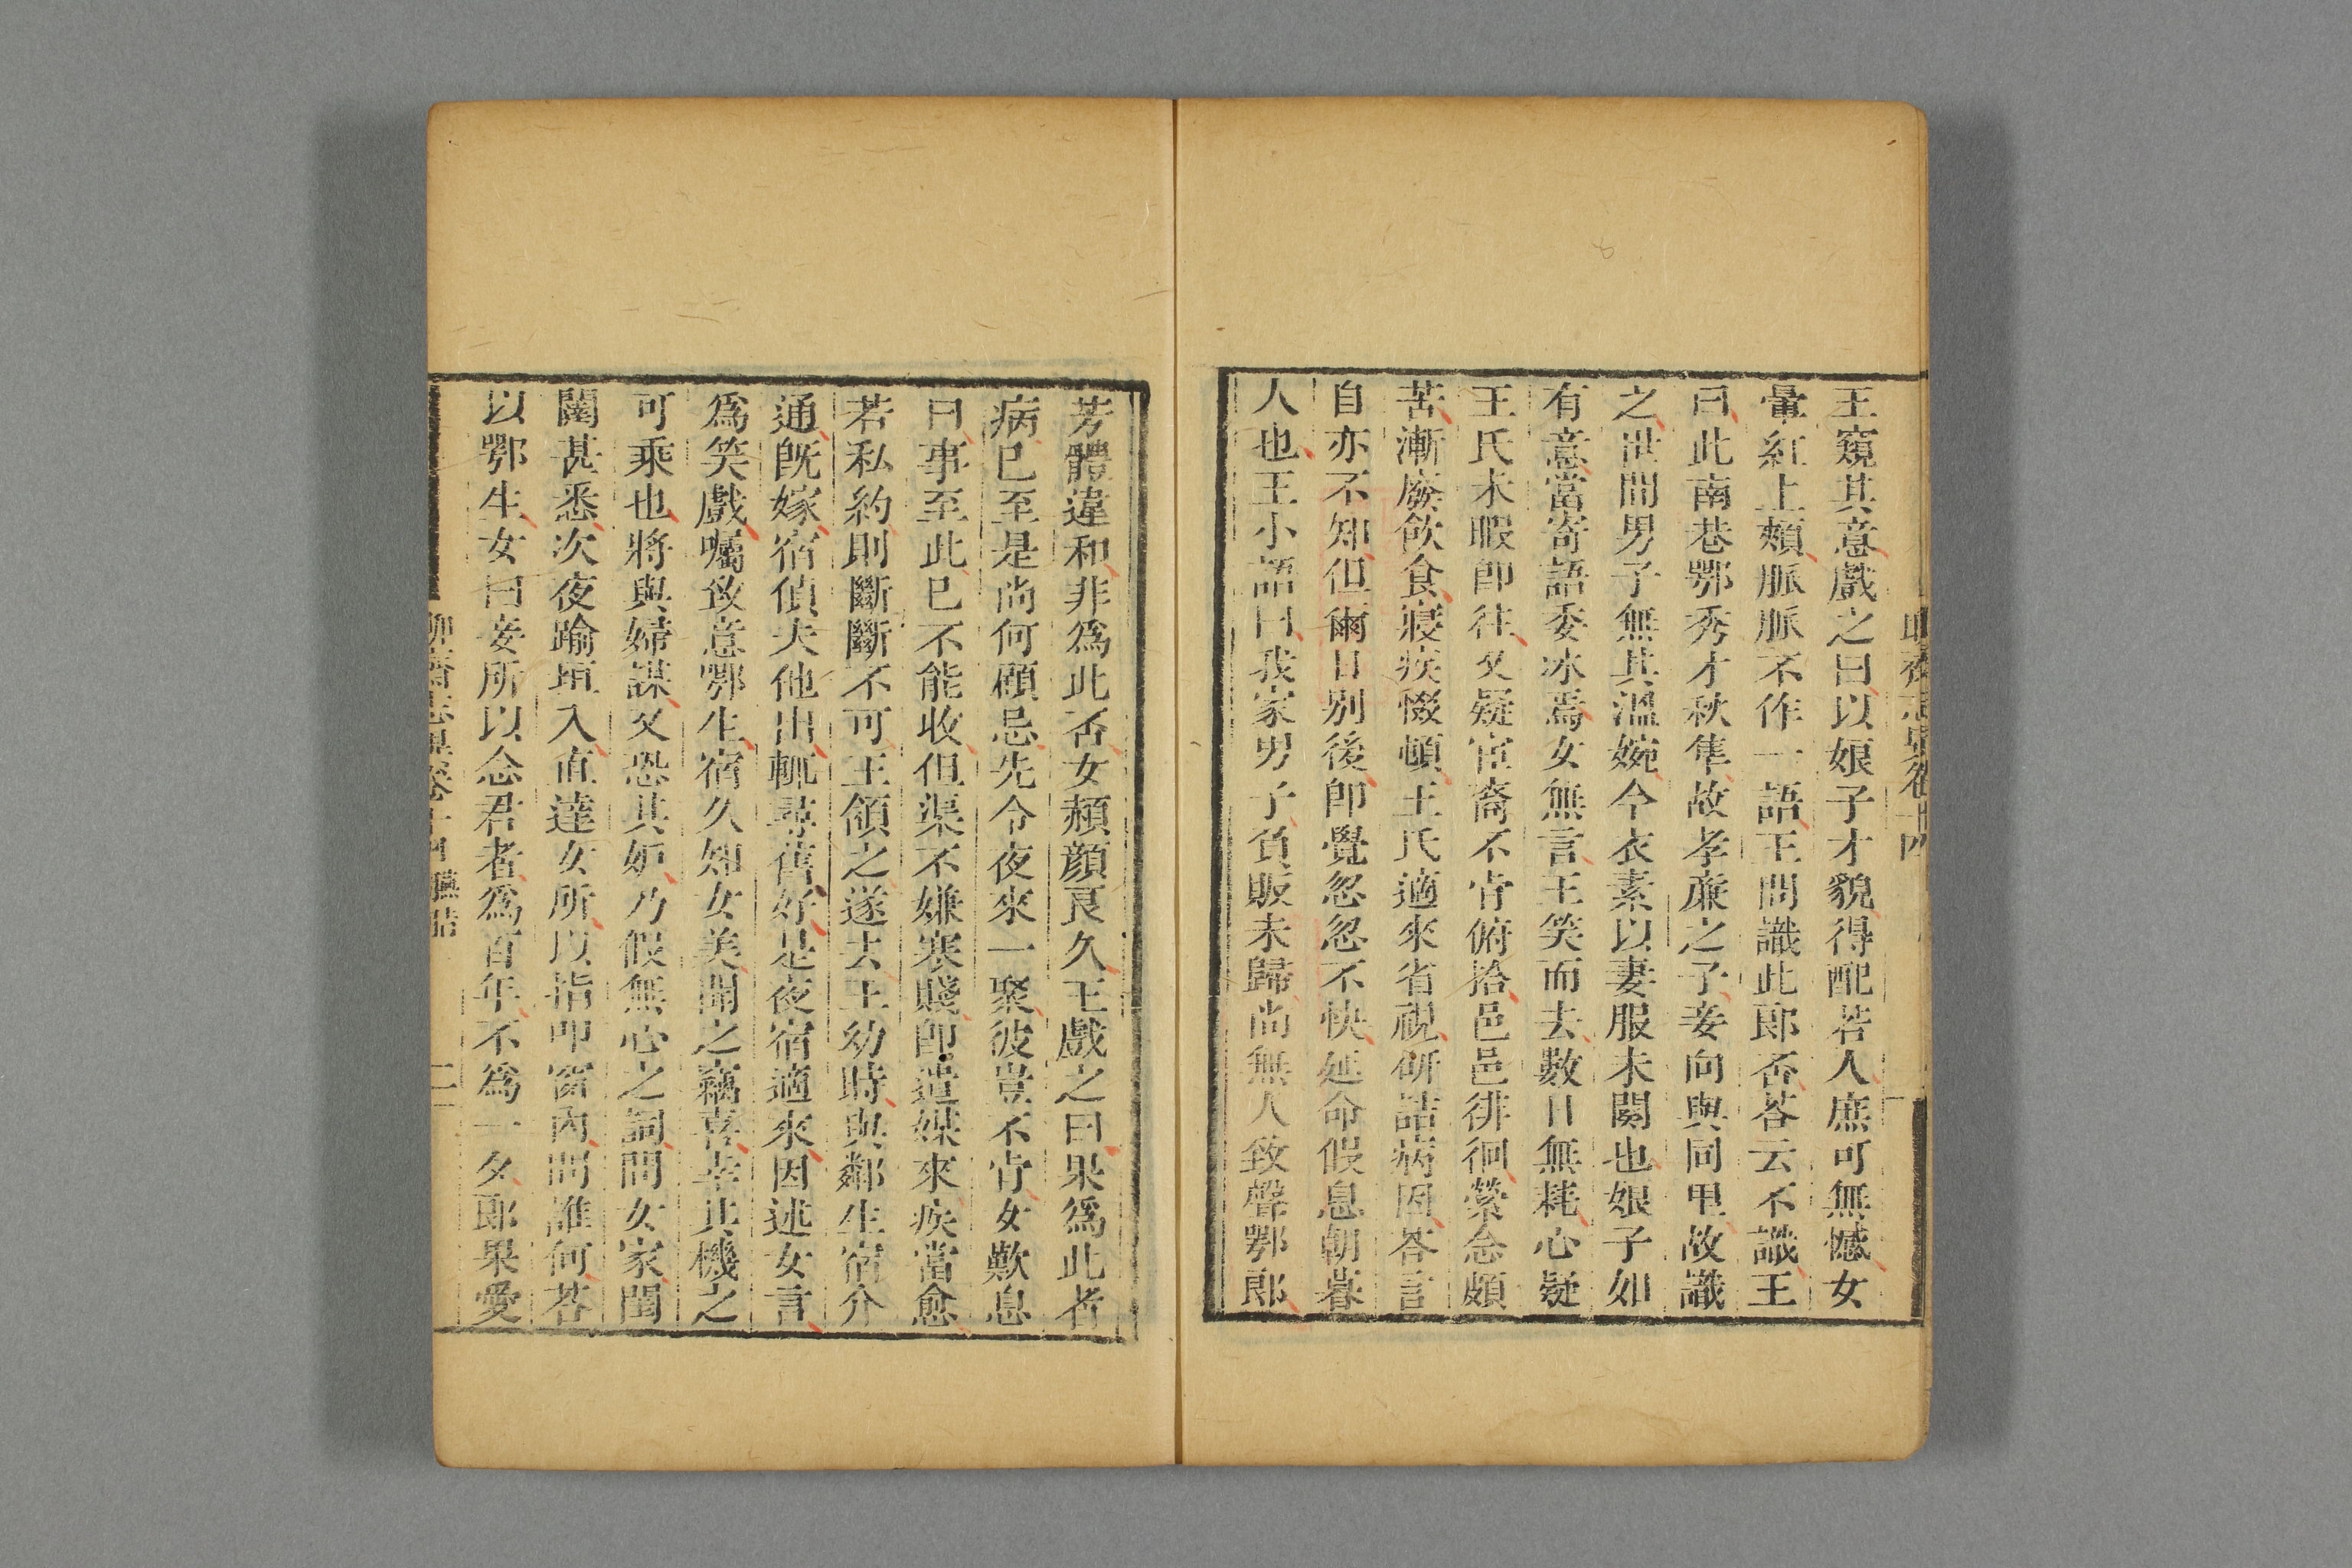 王窺其意戲之曰以娘子才貌得配若人庶可無憾女
暈紅上頰脈脈不作一語王問識此郞否荅云不識王
曰此南巷鄂秀才秋隼故孝廉之子妾向與同里故識
之世間男子無其溫婉今衣素以妻服未闋也娘子如
有意當寄語委冰焉女無言王笑而去數日無耗心疑
王氏未暇卽往又疑宦裔不肯俯拾邑邑徘徊縈念頗
苦漸廢飮食寢疾惙頓王氏適來省視硏詰病因荅言
自亦不知但爾日別後卽覺忽忽不快延命假息朝暮
人也王小語曰我家男子負販未歸尚無人致聲鄂郞
芳體違和非爲此否女頳顔良久王戲之曰果爲此者
病已至是尚何顧忌先令夜來一聚彼豈不肯女歎息
曰事至此已不能收但渠不嫌寒賤卽遣媒來疾當愈
若私約則斷斷不可王頷之遂去王幼時與鄰生宿介
通旣嫁宿偵夫他出輒尋舊好是夜宿適來因述女言
爲笑戲囑致意鄂生宿久知女美聞之竊喜幸其機之
可乘也將與婦謀又恐其妒乃假無心之詞問女家閨
闥甚悉次夜踰垣入直達女所以指叩窗內問誰何荅
以鄂生女曰妾所以念君者爲百年不爲一夕郞果愛
聊齋志異卷十四 臙脂
二